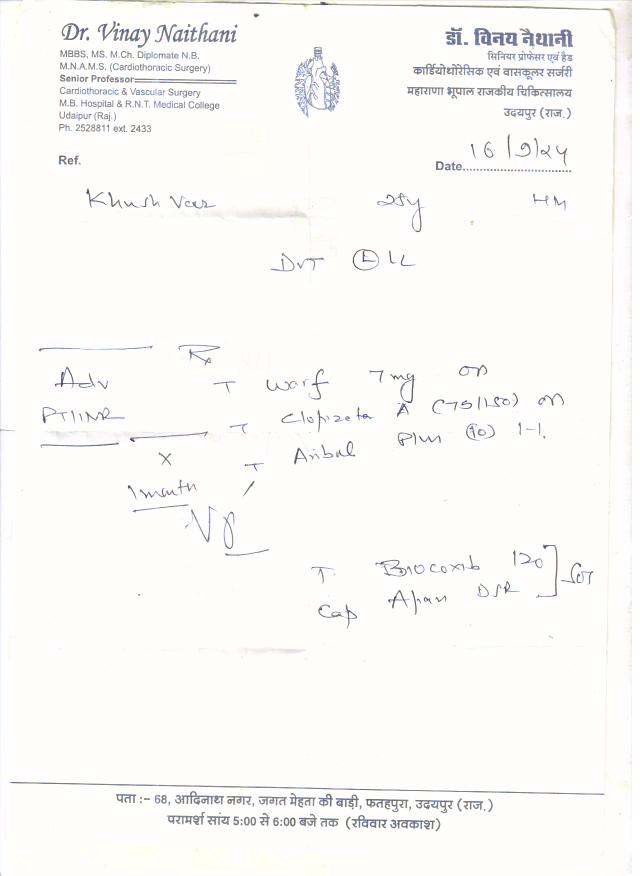 Dr. Vinay Naithani
MBBS, MS. M.Ch. Diplomate N.B.
M.N.A.M.S. (Cardiothoracic Surgery)
Senior Professor
Cardiothoracic & Vascular Surgery
M.B. Hospital & R.N.T. Medical College
Udaipur (Raj.)
Ph. 2528811 ext. 2433
डॉ. विनय नैथानी
सिनियर प्रोफेसर एवं हैड
कार्डियोथोरेसिक एवं वासकूलर सर्जरी
महाराणा भूपाल राजकीय चिकित्सालय
उदयपुर (राज.)
Ref.
Date 16/9/24
Khush Veer 25y
DVT (L) LL
Rx
Adv
PT/INR
T Warf 7mg OD
T Clopizeta A (75/150) OD
T Plus (10) 1-1
x
1 month
T. 120
Cap DSR SOS
पता :– 68, आदिनाथ नगर, जगत मेहता की बाड़ी, फतहपुरा, उदयपुर (राज.)
परामर्श सांय 5:00 से 6:00 बजे तक (रविवार अवकाश)